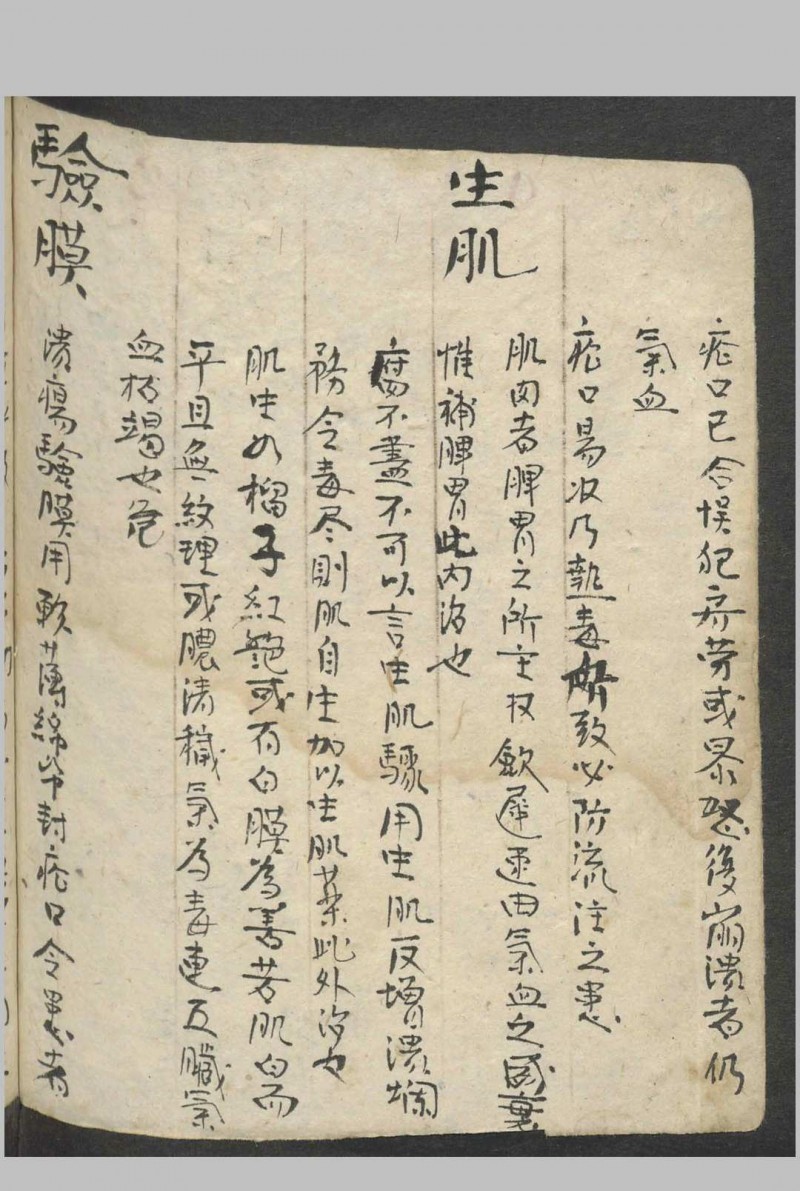 瘡口已合悮犯房劳或暴怒後崩潰者仍
氣血
生肌
瘡口易收乃熱毒所致必防流注之患
肌肉者脾胃之所主收斂遲速由氣血之盛衰
惟補脾胃此内治也
腐不盡不可以言生肌驟用生肌反增潰爛
務令毒尽則肌自生加以生肌薬此外治也
肌生如榴子紅艶或有白膜為善若肌白而
平且無紋理或膿清穢氣為毒連五臓氣
血枯竭也危
驗膜
潰瘍驗膜用軟薄綿帋封瘡口令患者